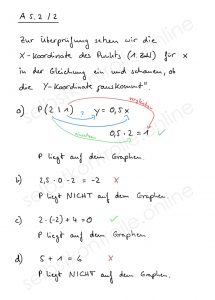 A 5.2 / 2
Zur Überprüfung setzen wir die
X-Koordinate des Punkts (1. Zahl) für x
in der Gleichung ein und schauen, ob
die Y-Koordinate "rauskommt".
vergleichen
a) P(2|1) y = 0,5x
?
einsetzen 0,5 · 2 = 1 ✓
P liegt auf dem Graphen.
b) 2,5 · 0 - 2 = -2 ✗
P liegt NICHT auf dem Graphen.
c) 2 · (-2) + 4 = 0 ✓
P liegt auf dem Graphen.
d) 5 + 1 = 6 ✗
P liegt NICHT auf dem Graphen.